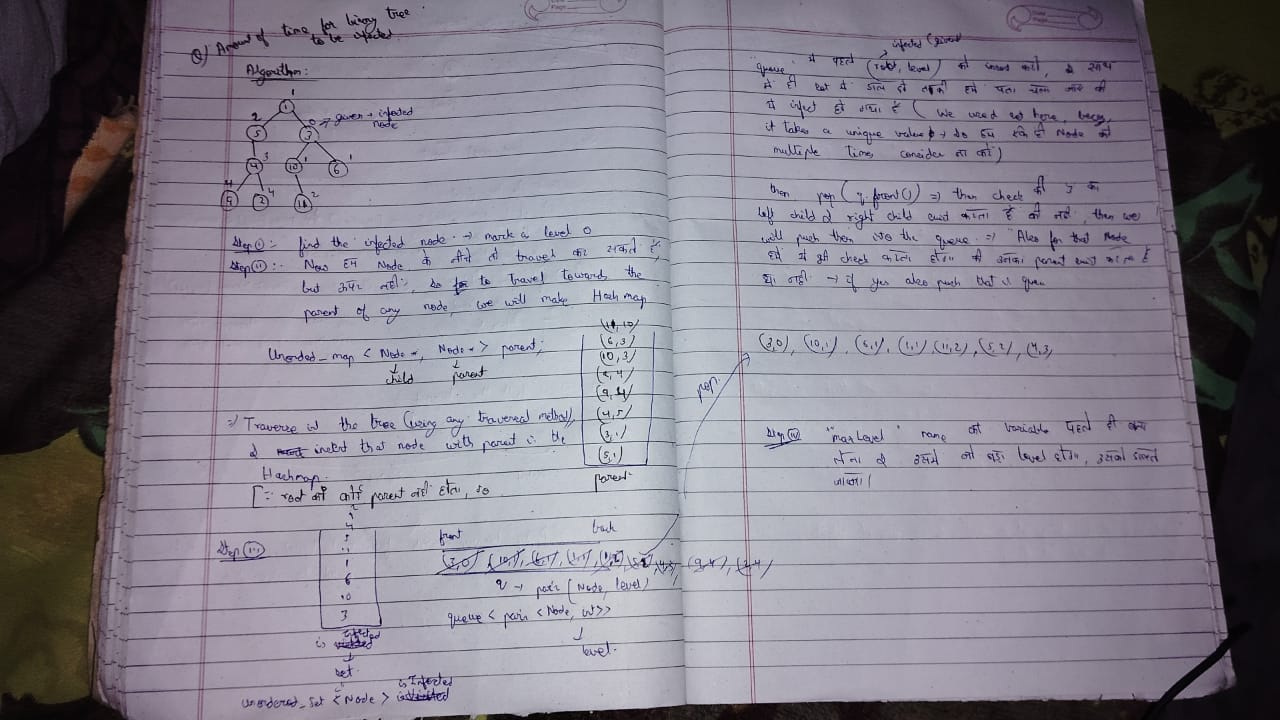 Q) Amount of time for binary tree
to be infected
Algorithm:
1
1
2
5
0
3
→ given → infected
node
3
4
10
1
6
1
4
9
4
2
2
11
Step (i) :- find the infected node → mark is level 0
Step (ii) :- Now हम Node के नीचे तो travel कर सकते हैं,
but ऊपर नहीं, so to Travel toward the
parent of any node, we will make Hashmap
Unorded_map < Node *, Node * > parent;
child parent
(11, 10)
(6, 3)
(10, 3)
(2, 4)
(9, 4)
(4, 5)
(3, 1)
(5, 1)
parent
⇒ Traverse in the tree (using any traversal method)
& insert that node with parent in the
Hashmap.
[∵ root का कोई parent नहीं होता, so
Step (iii)
2
9
4
5
11
1
6
10
3
is infected
set
unordered_set <Node> isInfected
front back
(3,0), (10,1), (6,1), (1,1), (11,2), (5,2), (4,3), (9,4), (2,4)
q → pair [Node, level)
queue < pair <Node, int>>
level.
pop.
infected (given)
queue में पहले (root, level) को insert करो, & साथ
में ही set में डाल दो ताकी हमे पता चल जाए की
ये infect हो गया है ( We used set here, becoz
it takes a unique value → so हम एक ही Node को
multiple times consider ना करें)
then pop (q.front()) ⇒ then check की 3 का
left child & right child exist करता है की नहीं, then we
will push then into the queue ⇒ Also for that Node
हमे ये भी check करना होगा की उनका parent exist करता है
या नहीं → if yes also push that in queue
(3,0), (10,1), (6,1), (1,1), (11,2), (5,2), (4,3)
Step (iv) "maxLevel" name का variable पहले ही बना
लेना & उसमे जो बड़ा level होगा, उसको डालते
जाना।